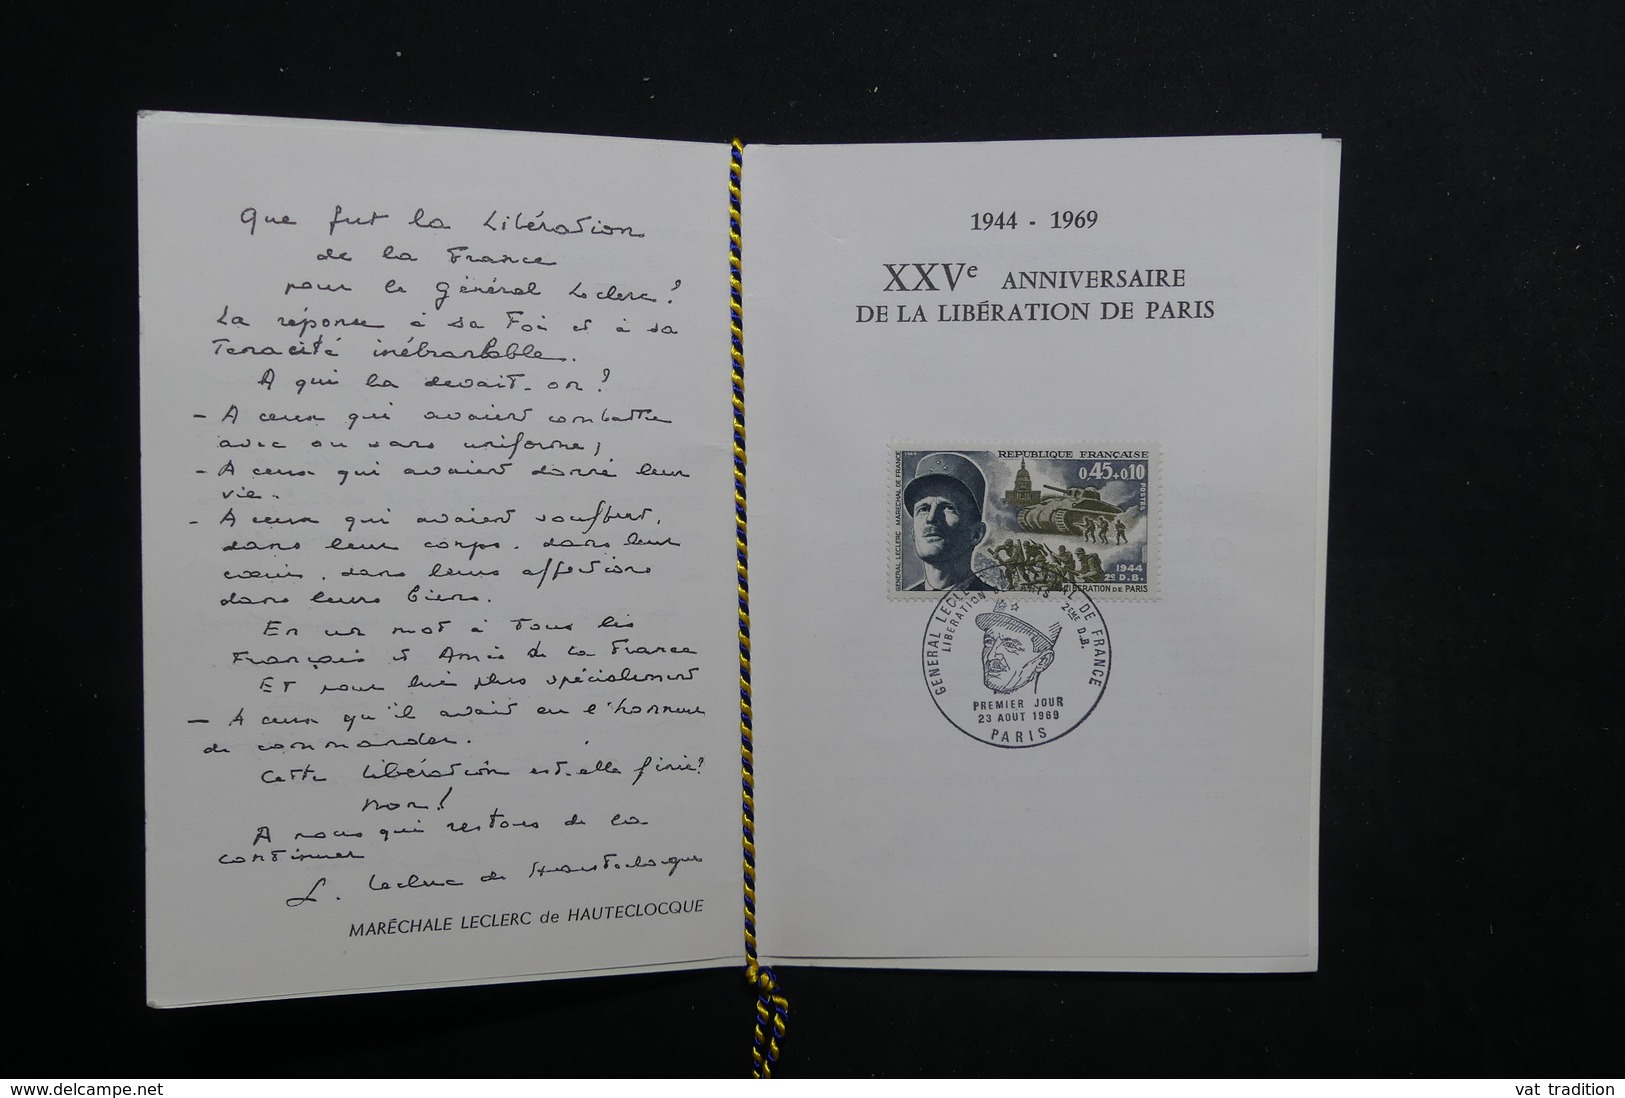 Que fut la Libération
de la France
pour le Général Leclerc?
La réponse à sa Foi et à sa
Tenacité inébranlable.
A qui la devait-on?
- A ceux qui avaient combattu
avec ou sans uniforme;
- A ceux qui avaient donné leur
vie.
- A ceux qui avaient souffert,
dans leur corps, dans leur
cœur, dans leurs affections
dans leurs biens.
En un mot à tous les
Français et Amis de la France
Et pour lui plus spécialement
- A ceux qu'il avait eu l'honneur
de commander.
Cette Libération est-elle finie?
Non!
A nous qui restons de la
continuer
Leclerc de Hauteclocque
MARÉCHALE LECLERC de HAUTECLOCQUE
1944 - 1969
XXVe ANNIVERSAIRE
DE LA LIBÉRATION DE PARIS
REPUBLIQUE FRANÇAISE
0,45+0,10
POSTES
GENERAL LECLERC MARECHAL DE FRANCE
1944
2e D.B.
LIBERATION DE PARIS
GENERAL LECLERC MARECHAL DE FRANCE
LIBERATION DE PARIS 2EME D.B.
PREMIER JOUR
23 AOUT 1969
PARIS
www.delcampe.net
vat_tradition